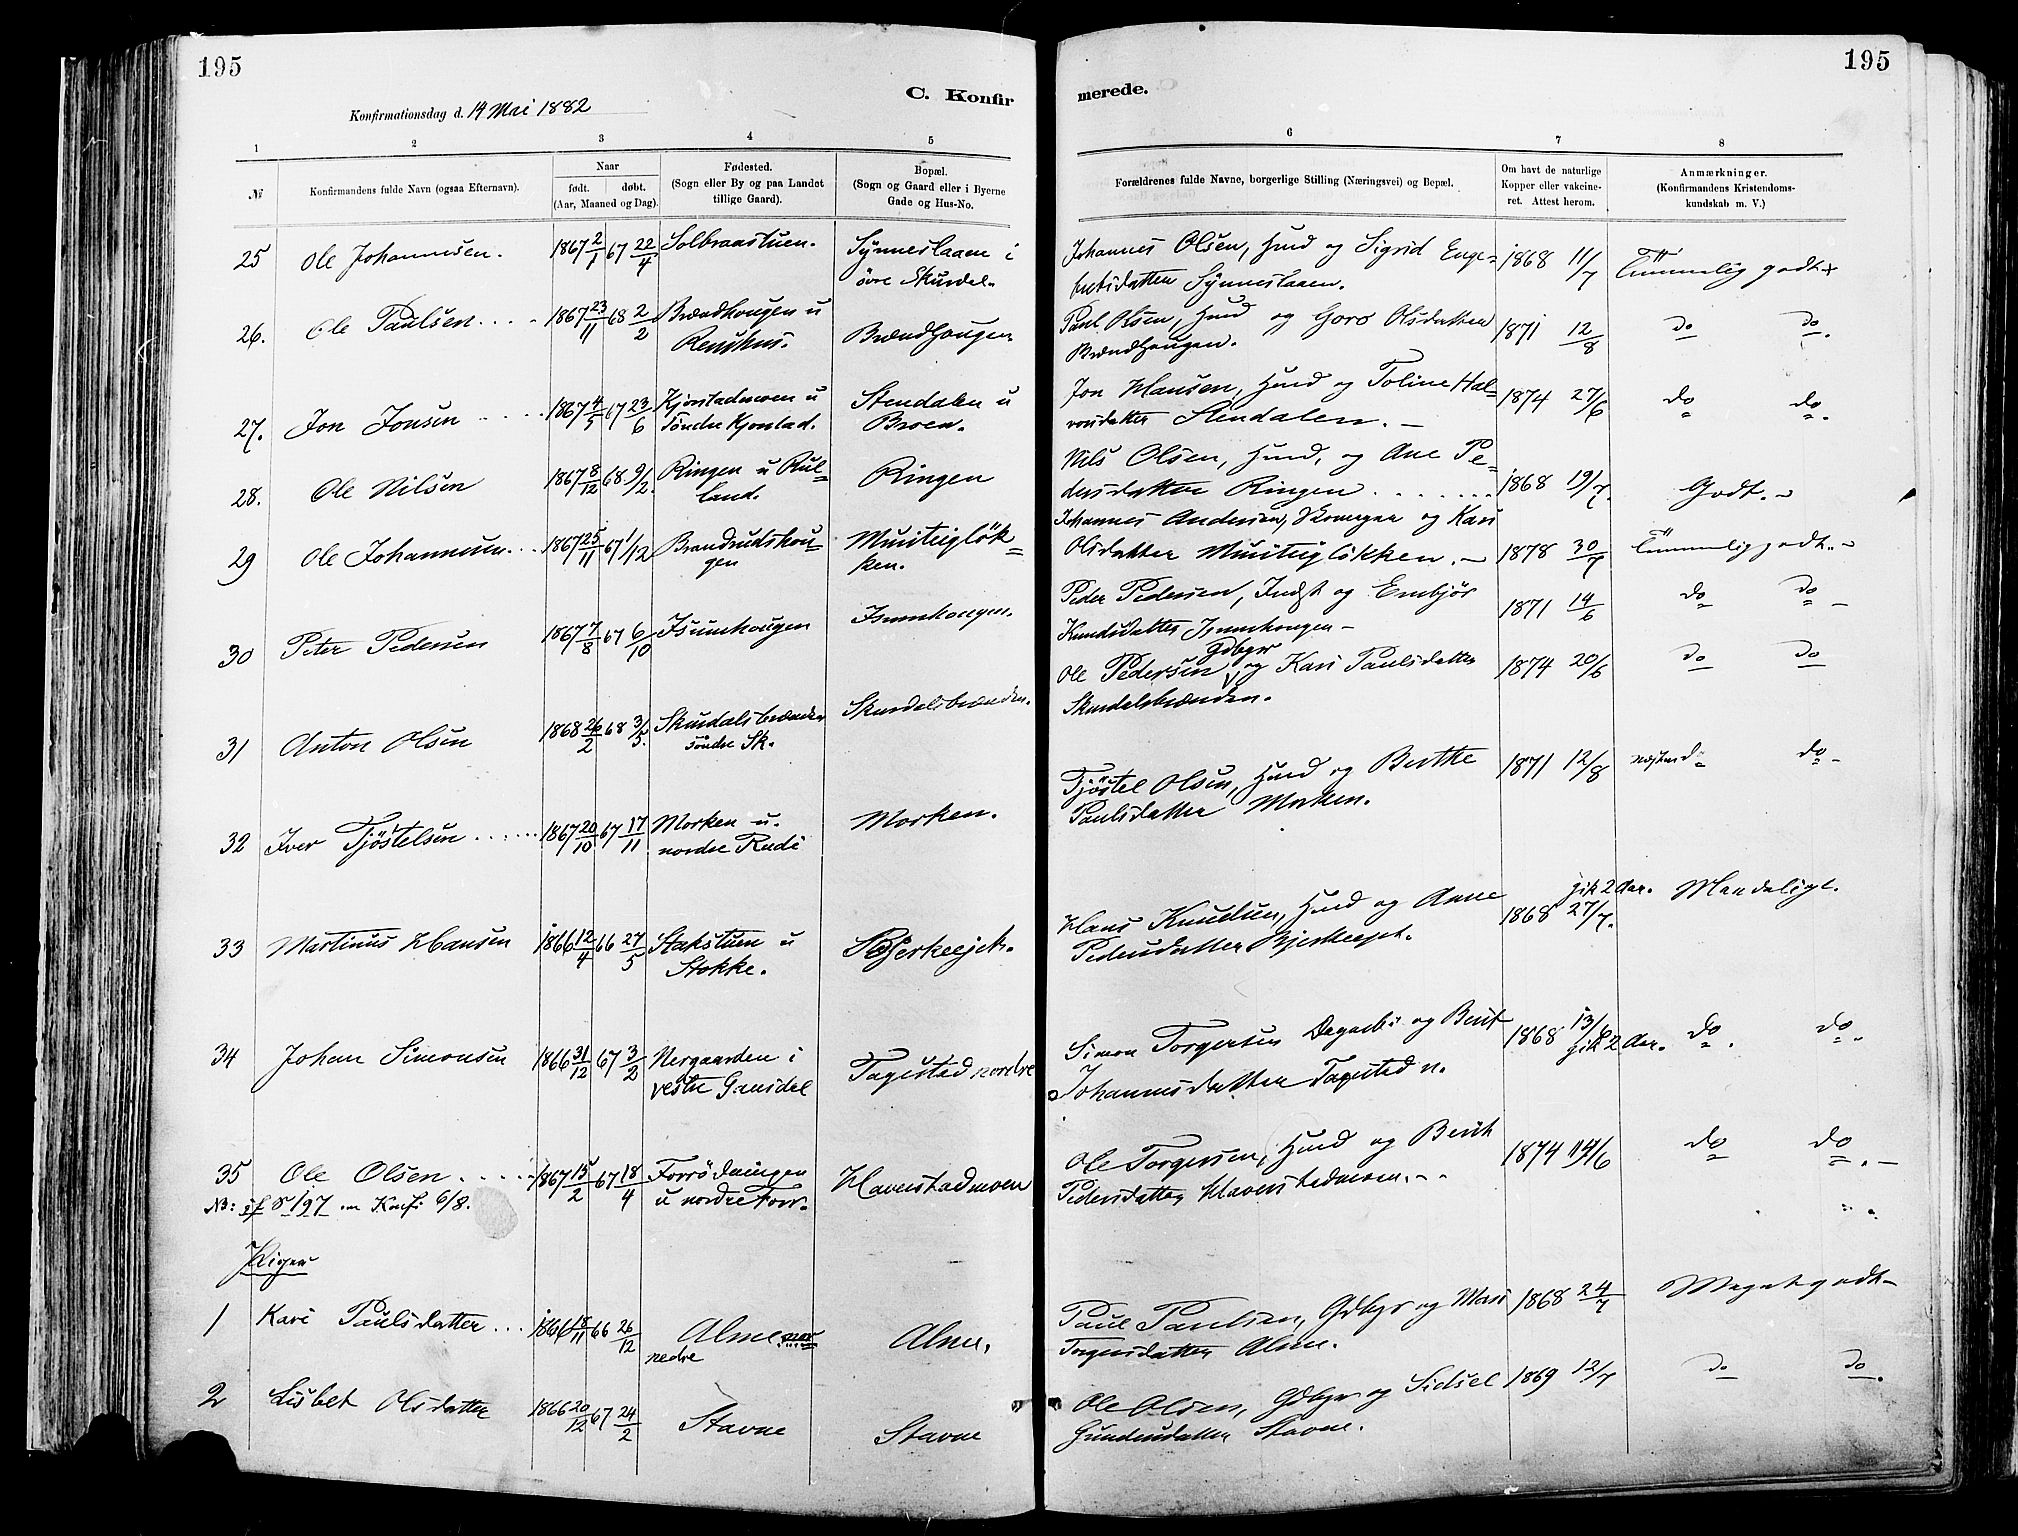 195
195
Konfirmationsdag d. 14 Mai 1882
C. Konfir
merede.
1 2 3 4 5 6 7 8
№
Konfirmandens fulde Navn (ogsaa Efternavn).
Naar
født. døbt.
(Aar, Maaned og Dag).
Fødested.
(Sogn eller By og paa Landet
tillige Gaard).
Bopæl.
(Sogn og Gaard eller i Byerne
Gade og Hus-No.
Forældrenes fulde Navne, borgerlige Stilling (Næringsvei) og Bopæl.
Om havt de naturlige
Kopper eller vakcine-
ret. Attest herom.
Anmærkninger.
(Konfirmandens Kristendoms-
kundskab m. V.)
25 Ole Johannesen. 1867 2/1 67 22/4 Solbraastuen. Synneslaaen i
øvre Skurdal.
Johannes Olsen, Husd og Sigrid Enge-
bretsdatter Synneslaaen. 1868 11/7 Temmelig godt
26. Ole Paulsen 1867 23/11 68 2/2 Brændhougen u
Renshus. Brændhougen.
Paul Olsen, Husd og Goro Olsdatter
Brændhougen. 1871 12/8 do do.
27. Jon Jonsen 1867 4/5 67 23/6 Kjorstadmoen u
Søndre Kjorstad. Stendalen u
Broen.
Jon Hansen, Husd og Toline Hal-
vorsdatter Stendalen. 1874 27/6 do do.
28. Ole Nilsen 1867 8/12 68 9/2. Ringen u Rul-
land. Ringen
Nils Olsen, Husd, og Ane Pe-
dersdatter Ringen 1868 19/7. Godt.
29 Ole Johannesen 1867 25/11 67 1/12 Brandrudshou-
gen
Johannes Andersen, Skomager og Kari
Olsdatter 1878 30/7 Temmelig godt.
30 Peter Pedersen 1867 7/8 67 6/10 Isumhougen Isumhougen.
Peder Pedersen, Indst og Embjør
Knudsdatter Isumhougen 1871 14/6 do do
31 Anton Olsen 1868 26/2 68 3/5. Skurdalsbrænden
søndre Sk. Skurdalsbrænden.
Ole Pedersen Gdbgr og Kari Paulsdatter
Skurdalsbrænden. 1874 20/6 do do
32 Iver Tjøstelsen 1867 20/10 67 17/11 Morken u.
nordre Rudi Morken.
Tjøstel Olsen, Husd og Berthe
Paulsdatter Morken. 1871 12/8 do
33 Martinus Hansen 1866 12/4 66 27/5 Stokstuen u
Stokke.
Hans Knudsen, Husd og Anne
Pedersdatter 1868 27/7. gik 2 Aar. Maadeligt.
34 Johan Simonsen 1866 31/12 67 3/2 Nergaarden i
vestre Gausdal Tagestad nordre
Simon Torgersen og Berit
Johannesdatter Tagestad n. 1868 13/8 gik 2 Aar. do. do.
35 Ole Olsen 1867 15/2 67 18/4 Forrødningen
u nordre Forr. Haverstadmoen
Ole Torgersen, Husd og Berit
Pedersdatter Haverstadmoen. 1874 14/6 do do.
NB: jf S 197 om Konfi 6/8.
Piger
1 Kari Paulsdatter 1866 18/11 66 26/12 Alme
nedre Alme.
Paul Paulsen, Gdbgr og Mari
Torgersdatter Alme. 1868 24/7 Meget godt
2 Lisbet Olsdatter 1866 20/12 67 24/2 Stavne Stavne
Ole Olsen, Gdbgr og Sidsel
Gundersdatter Stavne. 1869 12/7 do do.